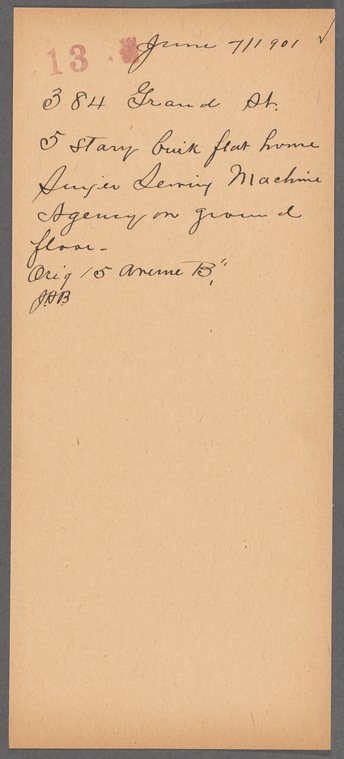 13
June 7/1901 ✓
384 Grand St.
5 story brick flat home
Singer Sewing Machine
Agency on ground
floor.
Orig 15 Avenue B"